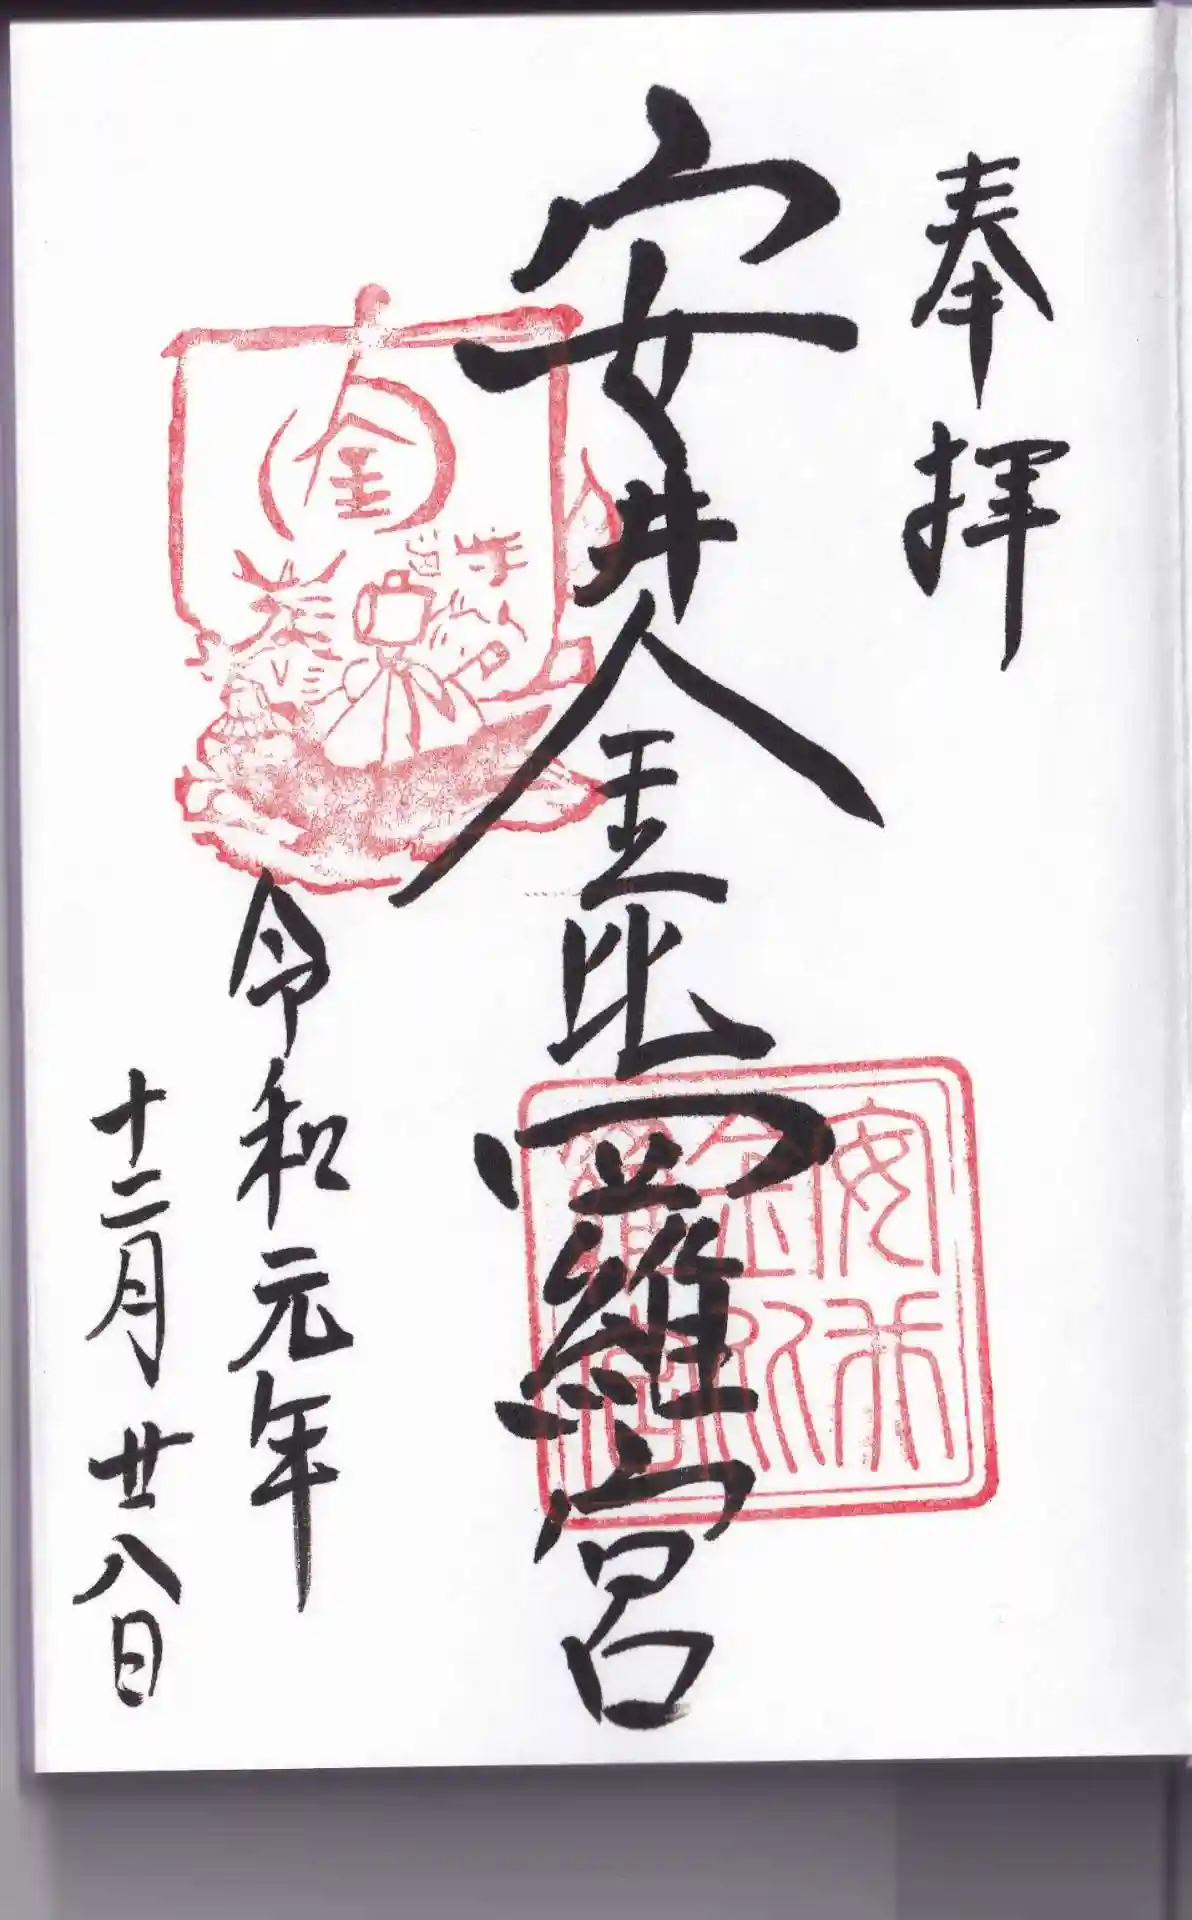 奉拝
安井金比羅宮
令和元年
十二月廿八日
金
安井
金比
羅宮